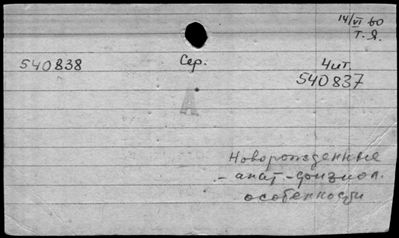 14/VI 60
Т. Я.
540838 Сер. Чит.
540837
Новорожденные
- анат-физиол.
особенности